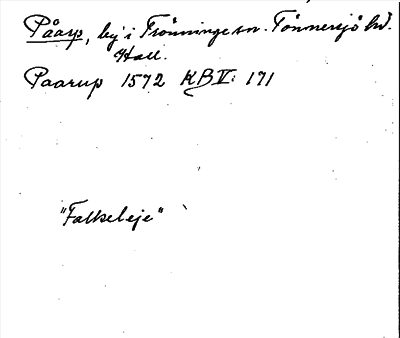 Påarp, by i Trönninge sn. Tönnersjö hd.
Hall.
Paarup 1572 KB V: 171
"Falkeleje"